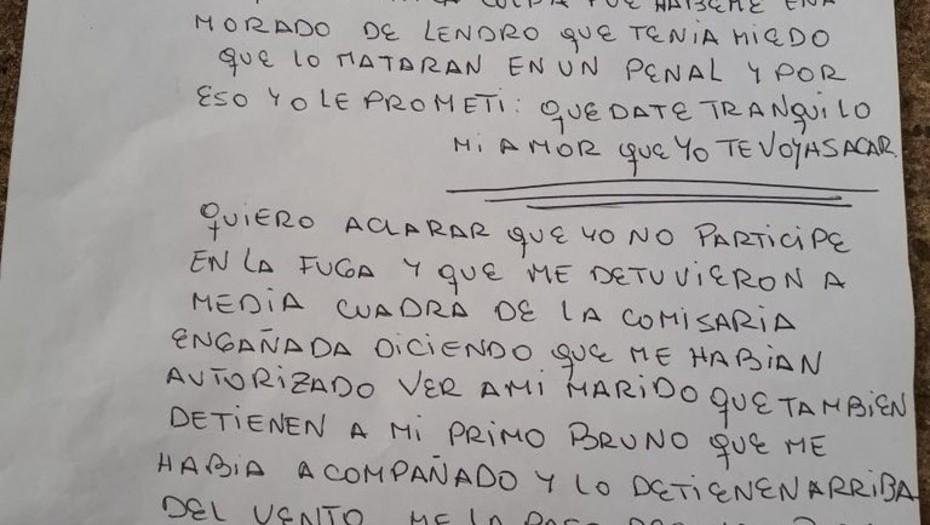 CULPA FUE HABERME ENA
MORADO DE LENDRO QUE TENIA MIEDO
QUE LO MATARAN EN UN PENAL Y POR
ESO YO LE PROMETI: QUEDATE TRANQUILO
MI AMOR QUE YO TE VOY A SACAR.
QUIERO ACLARAR QUE YO NO PARTICIPE
EN LA FUGA Y QUE ME DETUVIERON A
MEDIA CUADRA DE LA COMISARIA
ENGAÑADA DICIENDO QUE ME HABIAN
AUTORIZADO VER A MI MARIDO QUE TAMBIEN
DETIENEN A MI PRIMO BRUNO QUE ME
HABIA ACOMPAÑADO Y LO DETIENEN ARRIBA
DEL VENTO ME LA PASO